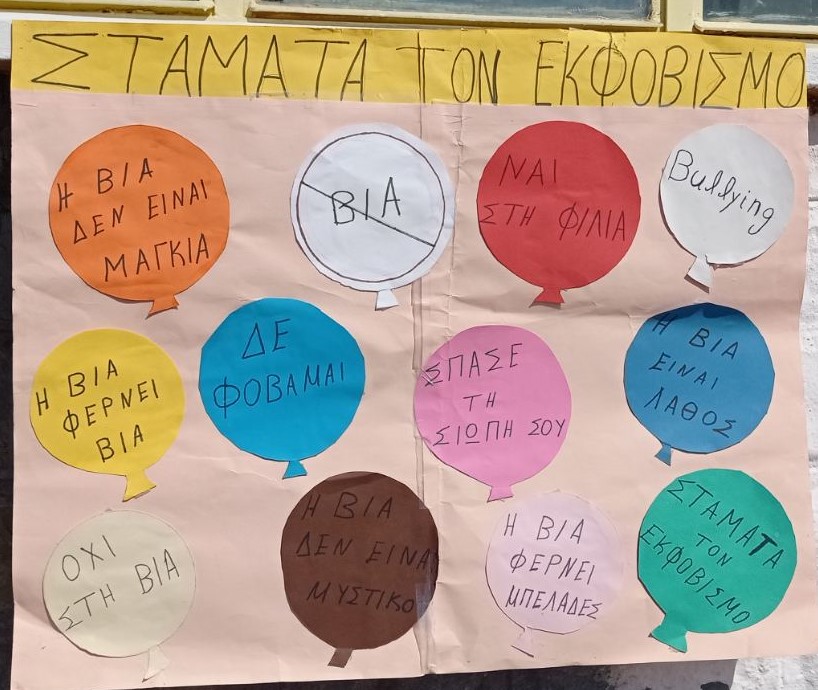 ΣΤΑΜΑΤΑ ΤΟΝ ΕΚΦΟΒΙΣΜΟ
Η ΒΙΑ
ΔΕΝ ΕΙΝΑΙ
ΜΑΓΚΙΑ
ΒΙΑ
ΝΑΙ
ΣΤΗ ΦΙΛΙΑ
Bullying
Η ΒΙΑ
ΦΕΡΝΕΙ
ΒΙΑ
ΔΕ
ΦΟΒΑΜΑΙ
ΣΠΑΣΕ
ΤΗ
ΣΙΩΠΗ ΣΟΥ
Η ΒΙΑ
ΕΙΝΑΙ
ΛΑΘΟΣ
ΟΧΙ
ΣΤΗ ΒΙΑ
Η ΒΙΑ
ΔΕΝ ΕΙΝΑΙ
ΜΥΣΤΙΚΟ
Η ΒΙΑ
ΦΕΡΝΕΙ
ΜΠΕΛΑΔΕΣ
ΣΤΑΜΑΤΑ
ΤΟΝ
ΕΚΦΟΒΙΣΜΟ